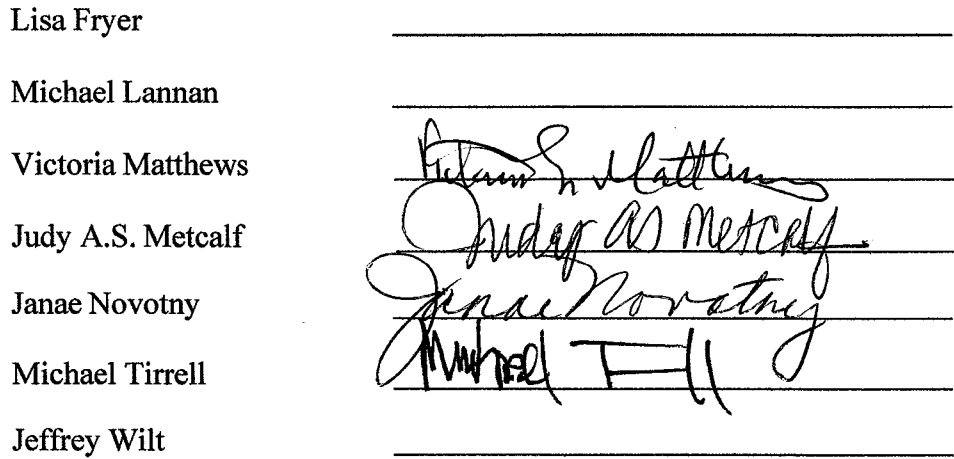 Lisa Fryer
Michael Lannan
Victoria Matthews Matthews
Judy A.S. Metcalf Judy AS Metcalf
Janae Novotny Janae Novotny
Michael Tirrell Michael
Jeffrey Wilt